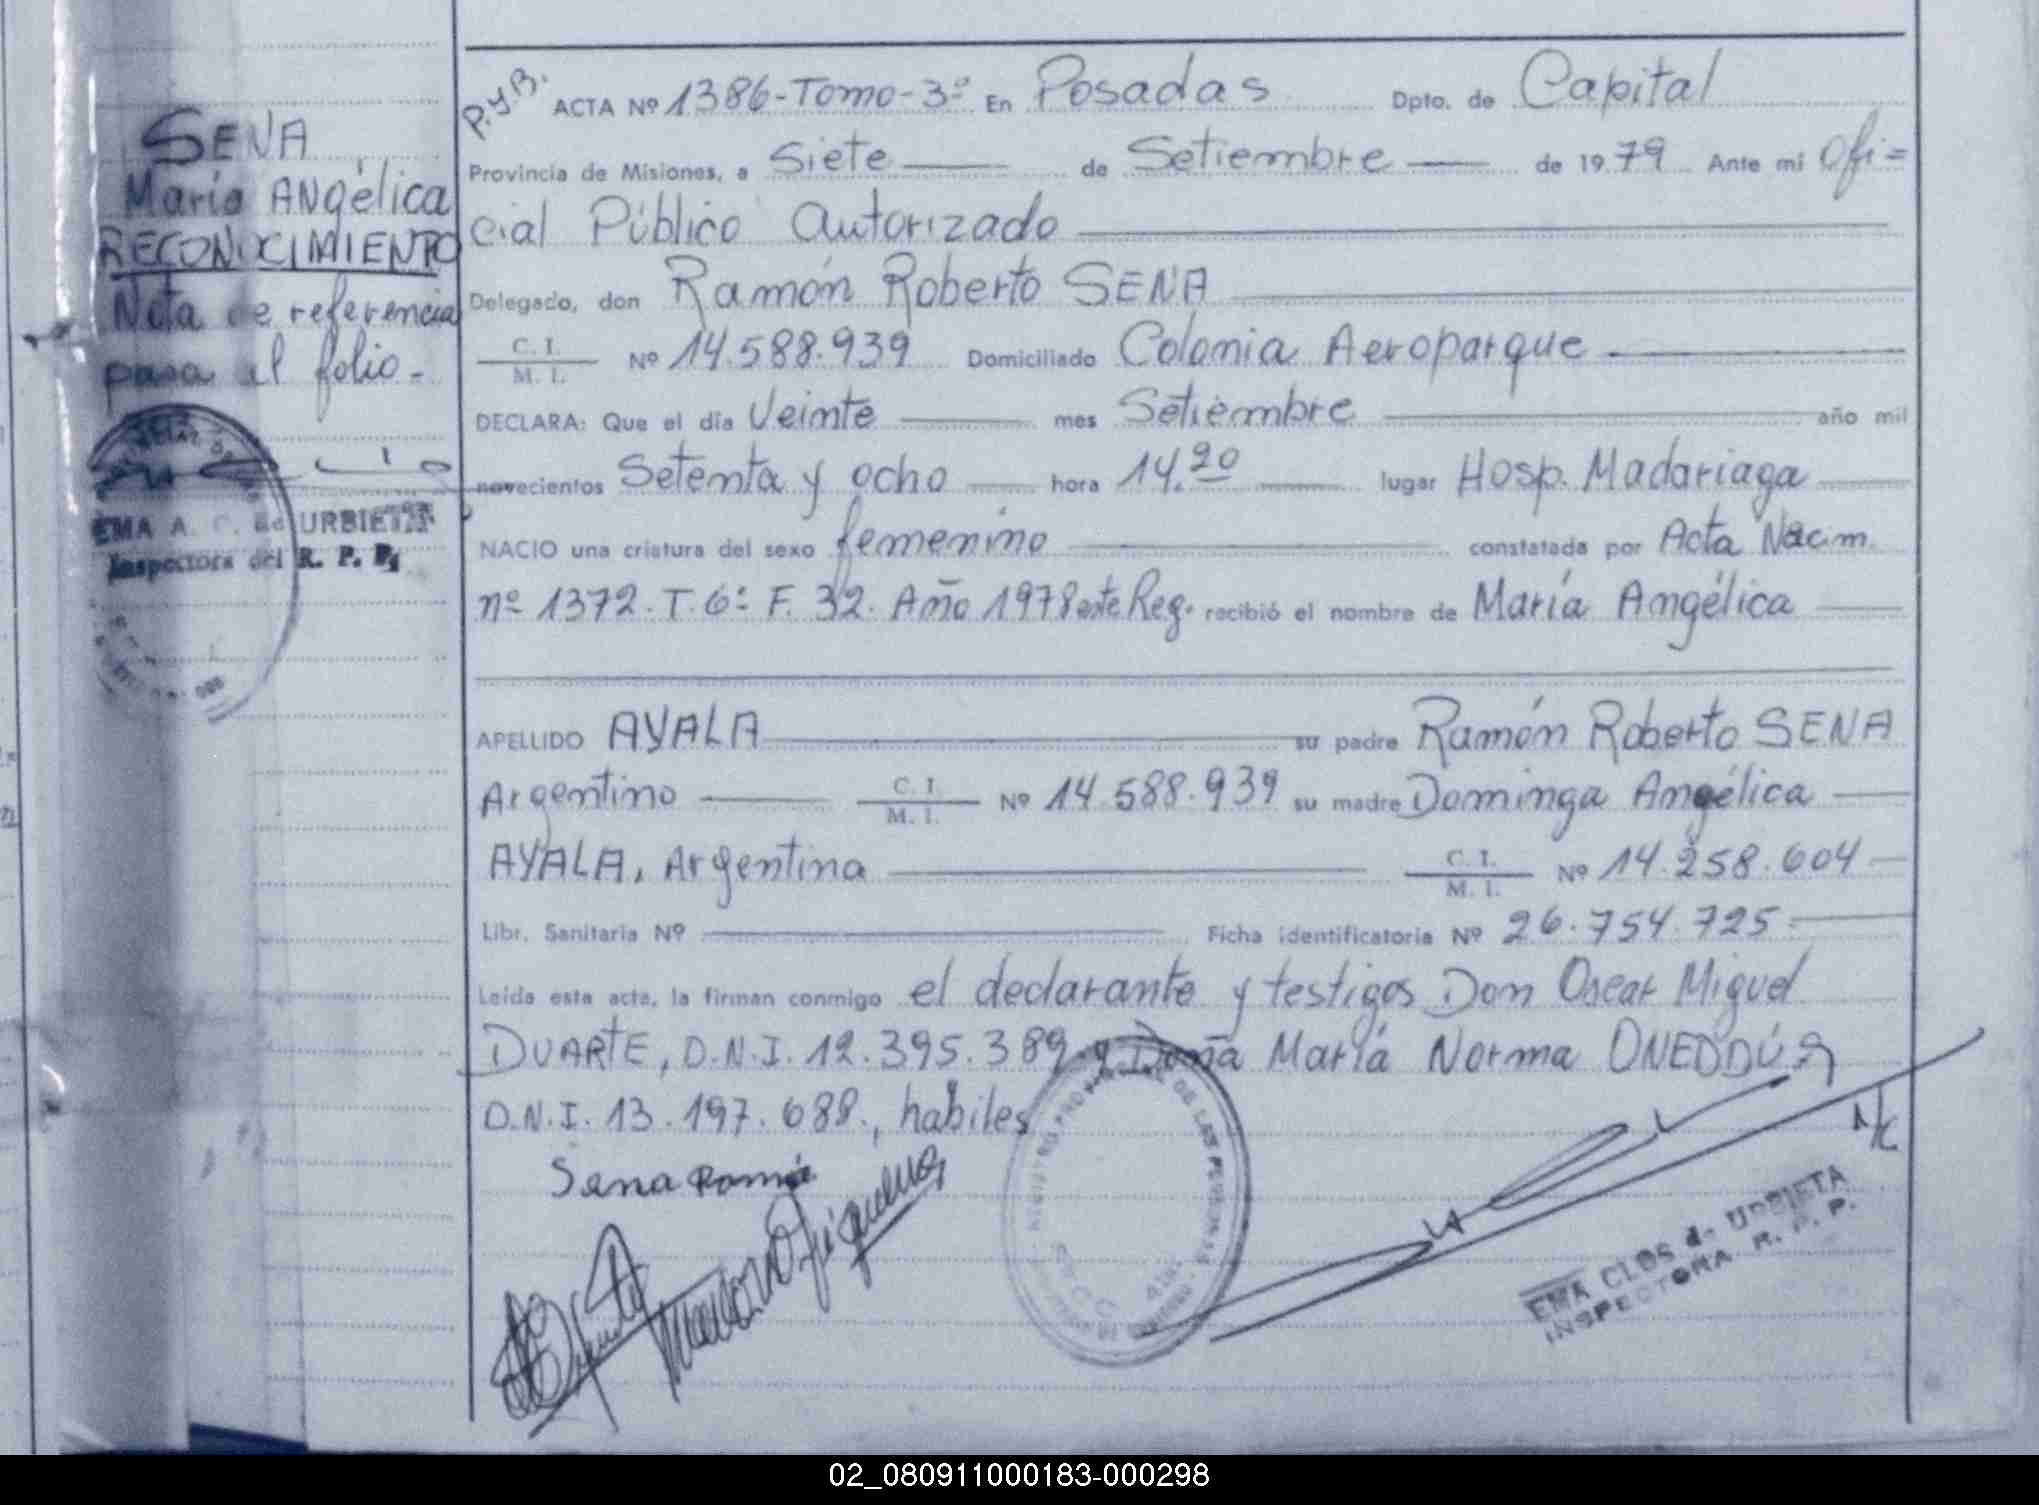 SENA
María ANgélica
RECONOCIMIENTO
Nota de referencia
pasa al folio.-
EMA A. C. de URBIETA
Inspectora del R. P. P.
P.y.B. ACTA Nº 1386-Tomo-3º En Posadas Dpto. de Capital
Provincia de Misiones, a Siete de Setiembre de 1979 Ante mi Ofi=
cial Público Autorizado
Delegado, don Ramón Roberto SENA
C. I. / M. I. Nº 14.588.939 Domiciliado Colonia Aeroparque
DECLARA: Que el día Veinte mes Setiembre año mil
novecientos Setenta y ocho hora 14.20 lugar Hosp. Madariaga
NACIO una criatura del sexo femenino constatada por Acta Nacim.
nº 1372. T. 6º F. 32. Año 1978 este Reg. recibió el nombre de María Angélica
APELLIDO AYALA su padre Ramón Roberto SENA
Argentino C. I. / M. I. Nº 14.588.939 su madre Dominga Angélica
AYALA, Argentina C. I. / M. I. Nº 14.258.604
Libr. Sanitaria Nº Ficha identificatoria Nº 26.754.725
Leída esta acta, la firman conmigo el declarante y testigos Don Oscar Miguel
DUARTE, D.N.I. 12.395.389 y Doña María Norma
D.N.I. 13.197.688., habiles
Sena Ramón
EMA CLOS de URBIETA
INSPECTORA R. P. P.
02_080911000183-000298